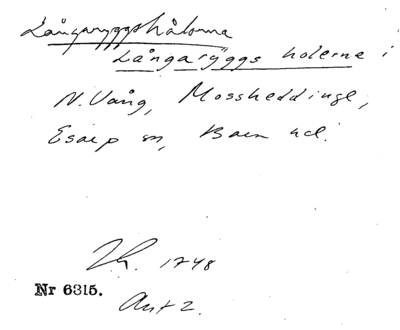 Långaryggshålorna
Långaryggs holerne i
N. Vång, Mossheddinge,
Esarp sn, Bara hd.
Lh. 1748
Nr 6315.
Akt 2.